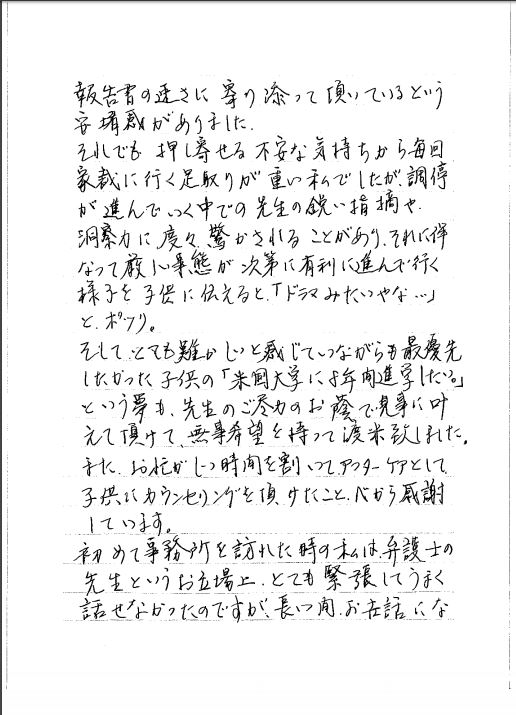 報告書の速さに寄り添って頂いているという
安堵感がありました。
それでも 押し寄せる不安な気持ちから毎回
家裁に行く足取りが重い私でしたが、調停
が進んでいく中での先生の鋭い指摘や
洞察力に度々驚かされることがあり、それに伴
なって厳しい事態が次第に有利に進んで行く
様子を子供に伝えると、「ドラマみたいやな…」
と、ポツリ。
そして、とても難かしいと感じていながらも最優先
したかった子供の「米国大学に4年間進学したい。」
という夢も、先生のご尽力のお蔭で見事に叶
えて頂けて、無事希望を持って渡米致しました。
また、お忙がしい時間を割いてアフターケアとして
子供にカウンセリングを頂けたこと、心から感謝
しています。
初めて事務所を訪れた時の私は、弁護士の
先生というお立場上、とても緊張してうまく
話せなかったのですが、長い間、お世話にな